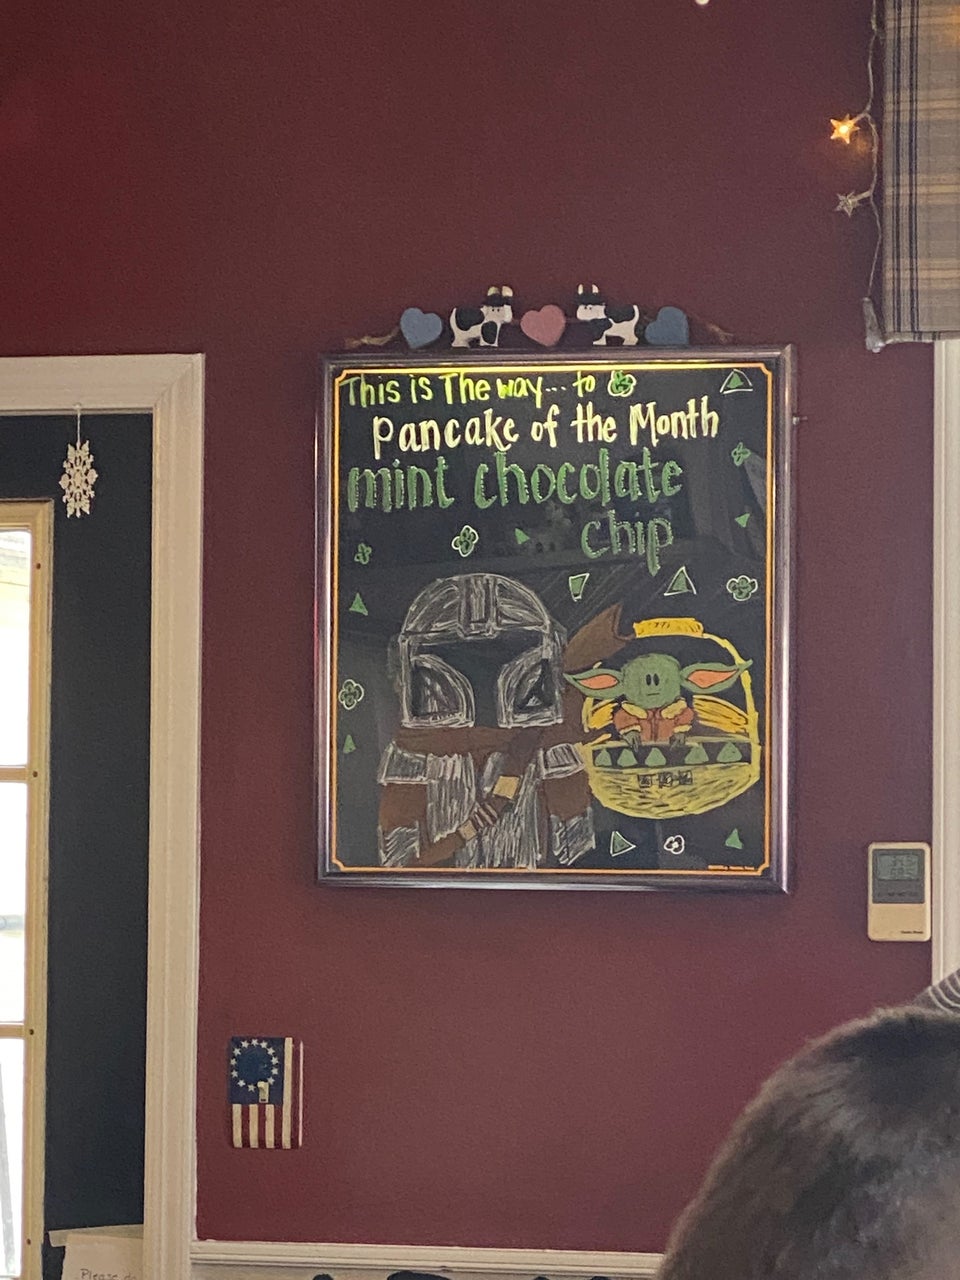 This is The way... to
pancake of the Month
mint chocolate
chip
Please do